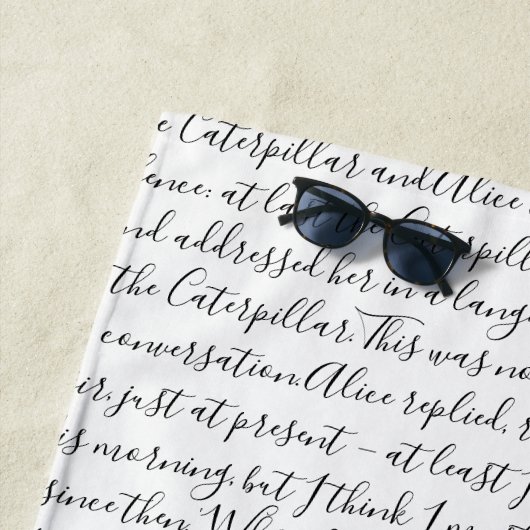 e Caterpillar and Alice
ence: at last the Caterpill
nd addressed her in a langu
the Caterpillar. This was no
conversation. Alice replied, r
ir, just at present – at least I
is morning, but I think I m
since then. 'Wh